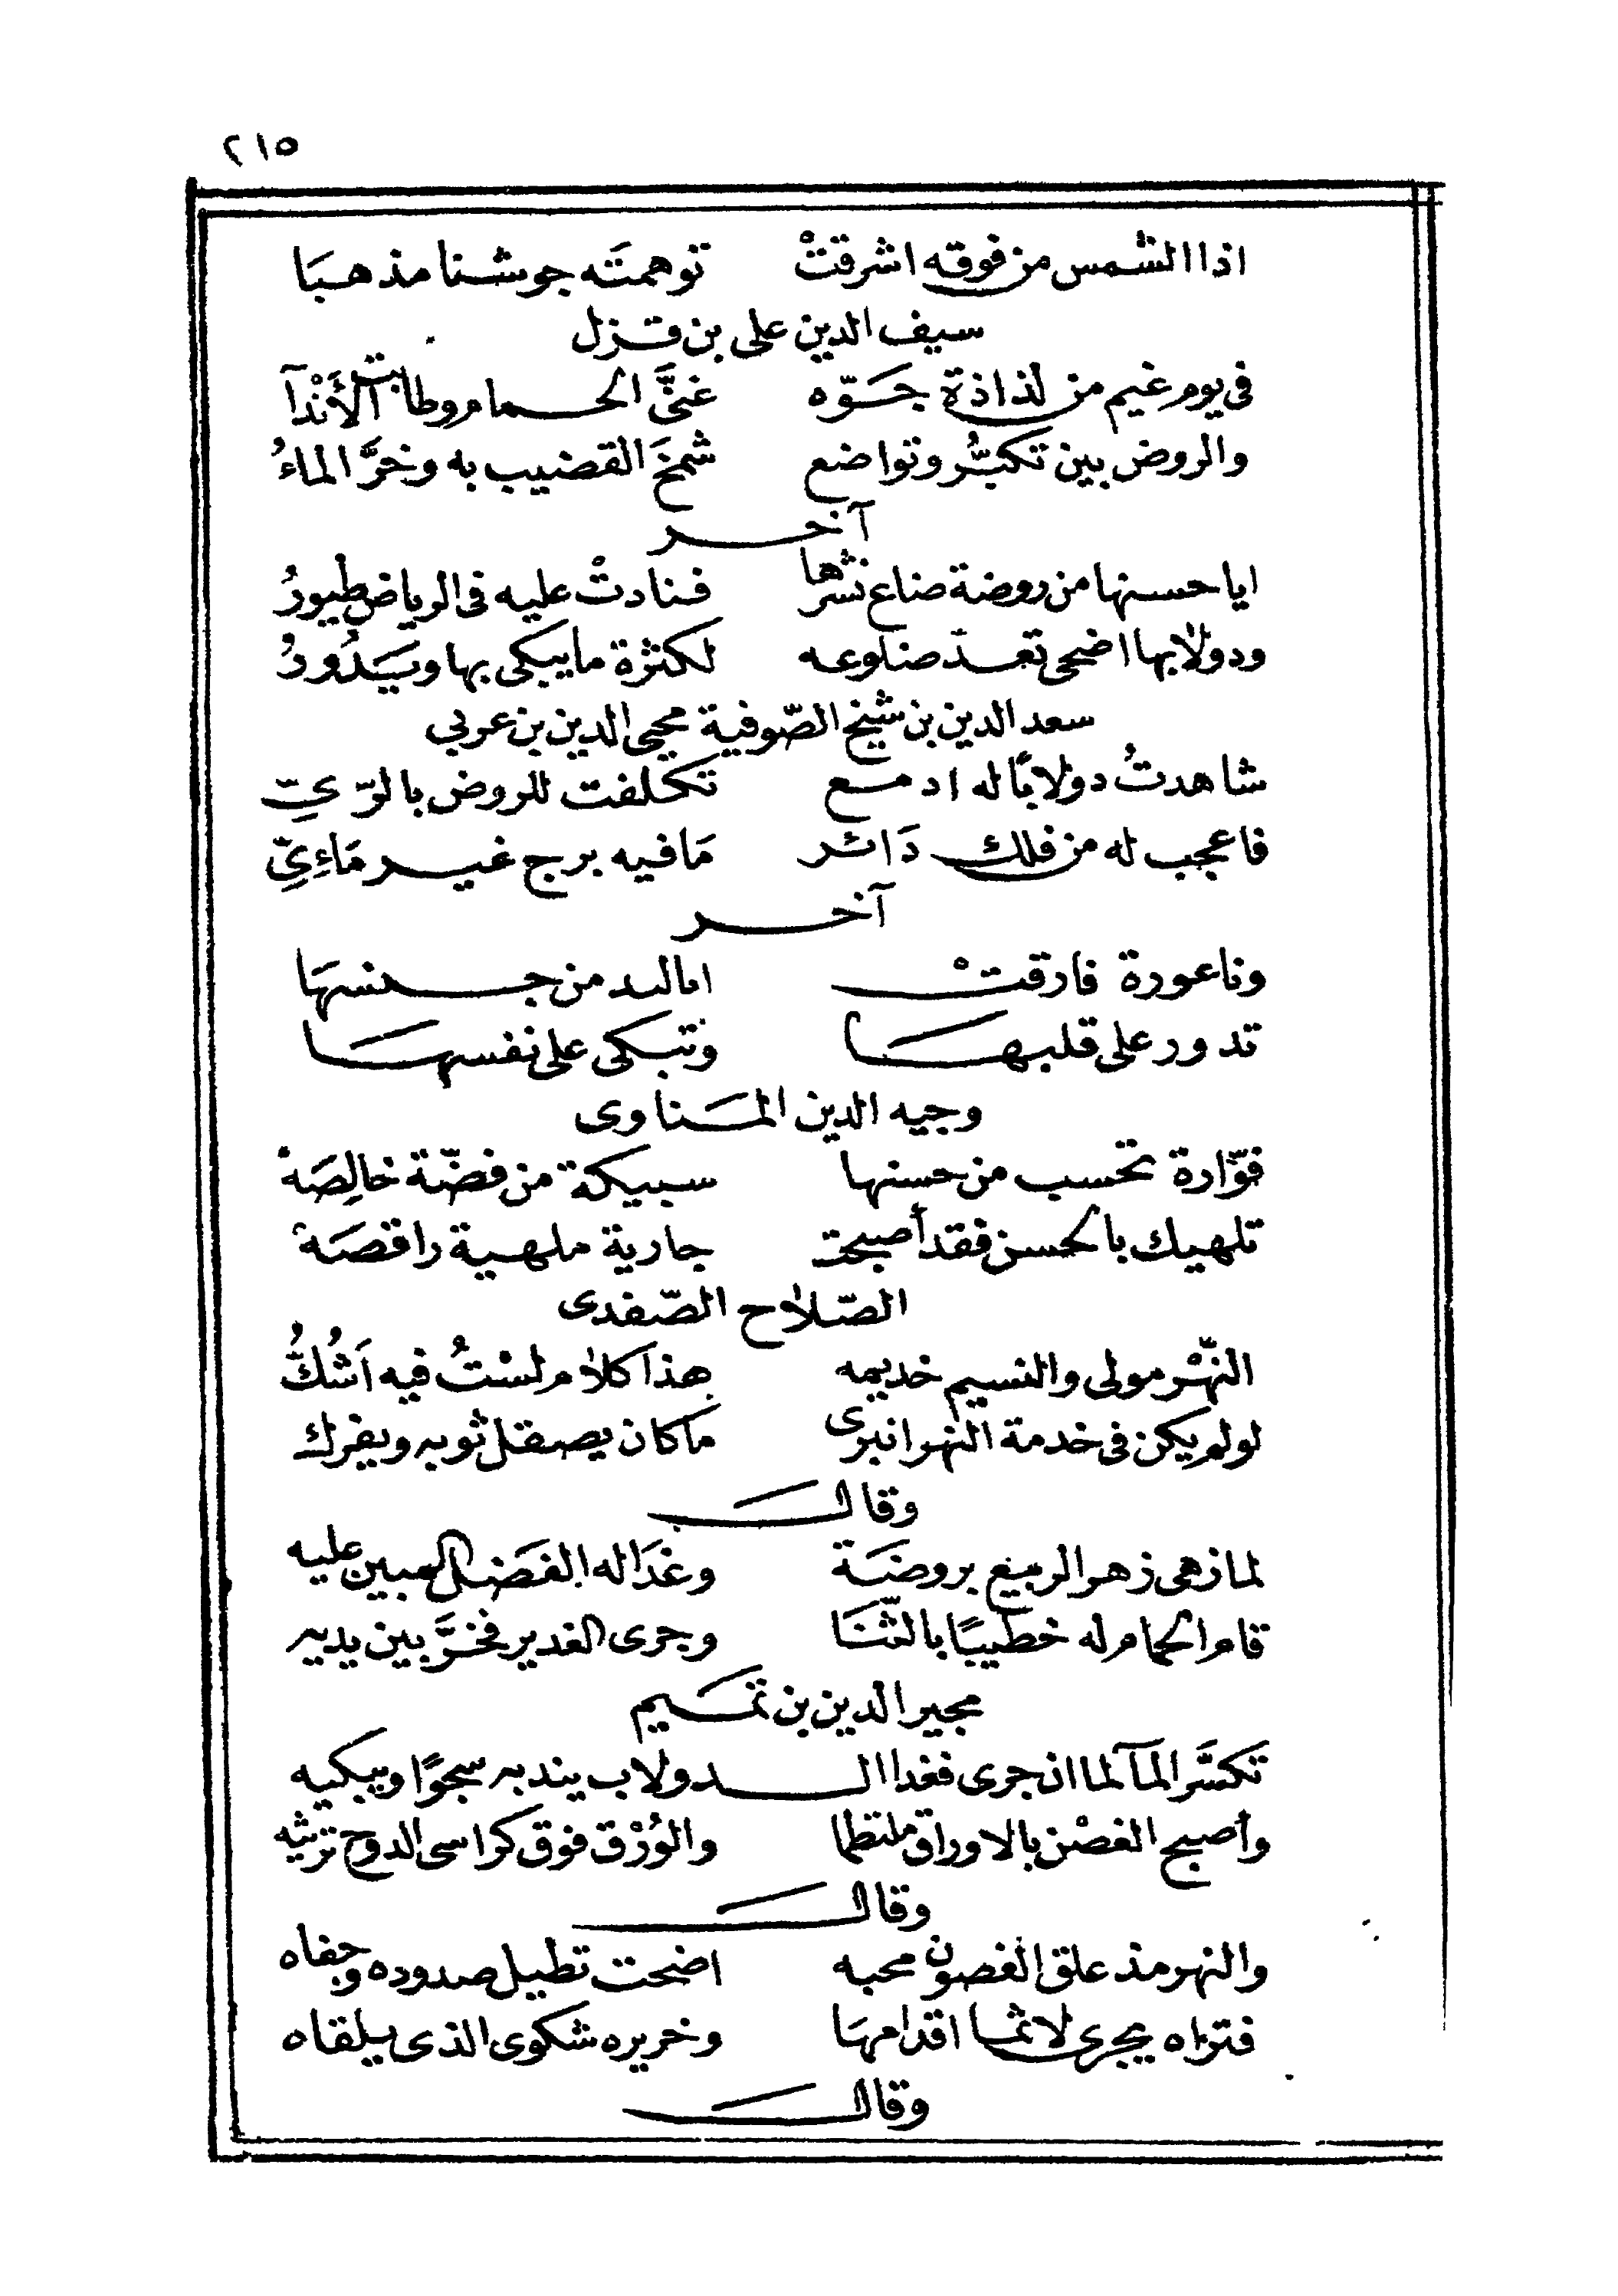 ٢١٥
اذا الشمس من فوقه اشرقتْ توهمتَه جوشنا مذهبَا
سيف الدين على بن قزل
فى يوم غيم من لذاذة جَوّه غنَّى الحمام وطابت الأَنْدآ
والروض بين تكبُّر وتواضع شمخَ القضيب به وخرَّ الماءُ
آخر
ايا حسنها من روضة ضاع نشرها فنادتْ عليه فى الرياض طيورُ
ودولابها اضحى تعدّ ضلوعه لكثرة ما يبكى بها ويَدُورُ
سعد الدين بن شيخ الصّوفية محيى الدين بن عربي
شاهدتُ دولابًا له ادمع تكلفت للروض بالرّىِّ
فاعجب له من فلك دَائر مَا فيه برج غير مَاءِىِّ
آخر
وناعورة فارقتْ من جنسهَا
تدور على قلبهَا وتبكى على نفسهَا
وجيه الدين المَناوى
فوّارة تحسب من حسنها سبيكة من فضّة خالِصَهْ
تلهيك بالحسن فقد أصبحت جارية ملهية راقصَهْ
الصّلاح الصّفدى
النّهْر مولى والنسيم خديمه هذا كلام لسْتُ فيه اَشُكُّ
لو لم يكن فى خدمة النهر انبرى ما كان يصقل ثوبه ويفرك
وقالَ
لما زهى زهر الربيع بروضَة وغدَا له الفَضل المبين عليه
قام الحمام له خطيبًا بالثّنَا وجرى الغدير فخرَّ بين يديه
مجير الدين بن تَميم
تكسَّر المآ لما ان جرى فغدا الدولاب يندبه سجوًا ويبكيه
وأصبح الغصْن بالاوراق ملتطما والوُرْق فوق كراسى الدوح ترثيه
وقالَ
والنهر مذ علق الغصون محبه اضحت تطيل صدوده وجفاه
فتراه يجرى لاثما اقدامهَا وخريره شكوى الذى يلقاه
وقالَ